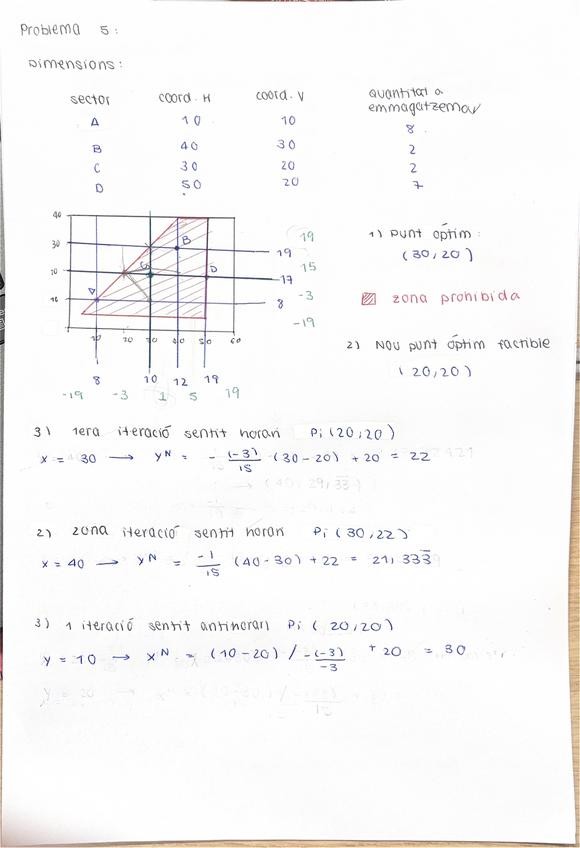 Problema 5:
Dimensions:
sector coord. H coord. V quantitat a emmagatzemar
A 10 10 8
B 40 30 2
C 30 20 2
D 50 20 7
40
30 B 19 19
20 C D 17 15
10 A 8 -3
-19
10 20 30 40 50 60
8 10 12 19
-19 -3 1 5 19
1) Punt òptim:
(30,20)
zona prohibida
2) Nou punt òptim factible
(20,20)
3) 1era iteració sentit horari Pi (20,20)
x = 30 → yᴺ = - (-3)/15 · (30-20) + 20 = 22
2) zona iteració sentit horari Pi (30,22)
x = 40 → yᴺ = -1/15 (40-30) + 22 = 21,333̅
3) 1 iteració sentit antihorari Pi (20,20)
y = 10 → xᴺ = (10-20) / -(-3)/-3 + 20 = 30